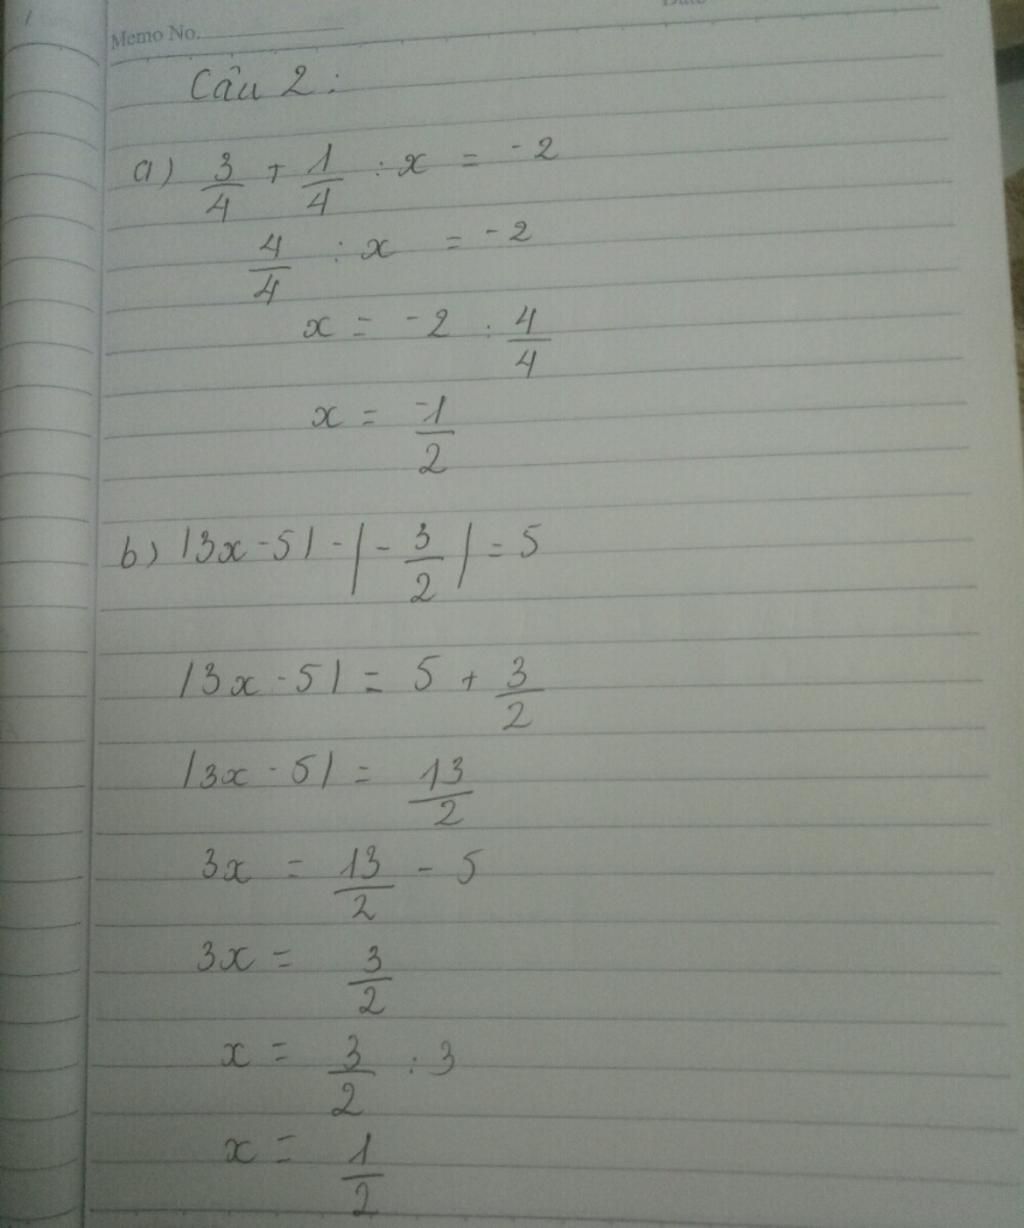 Memo No.
Câu 2:
a) 3/4 + 1/4 : x = -2
4/4 : x = -2
x = -2 : 4/4
x = -1/2
b) |3x - 5| - |- 3/2| = 5
|3x - 5| = 5 + 3/2
|3x - 5| = 13/2
3x = 13/2 - 5
3x = 3/2
x = 3/2 : 3
x = 1/2